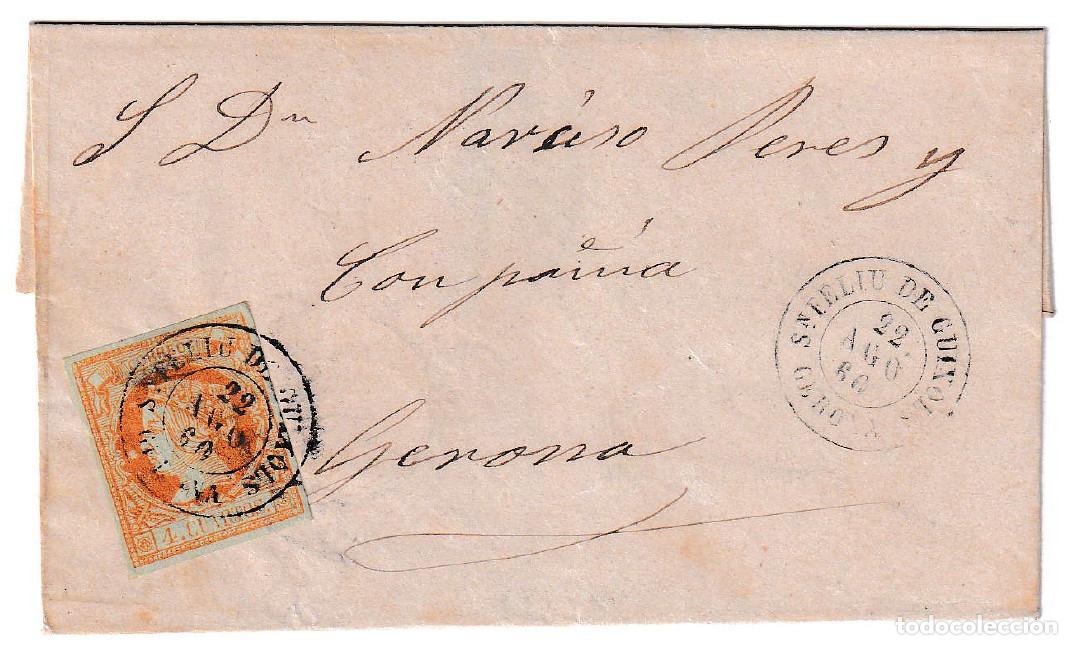 S Dn Narciso Peres y
Compañia
Gerona
S.N FELIU DE GUIXOLS
22
AGO
60
GERONA
S.N FELIU DE GUIXOLS
22
AGO
60
4. CUARTOS
todocoleccion